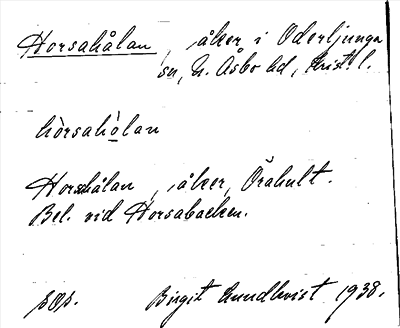 Horsahålan, åker i Oderljunga
sn, N. Åsbo hd, Krist. l.
hòrsahòlan
Horsahålan, åker, Örahult.
Bel. vid Horsabacken.
pop. Birgit Lundkvist 1938.